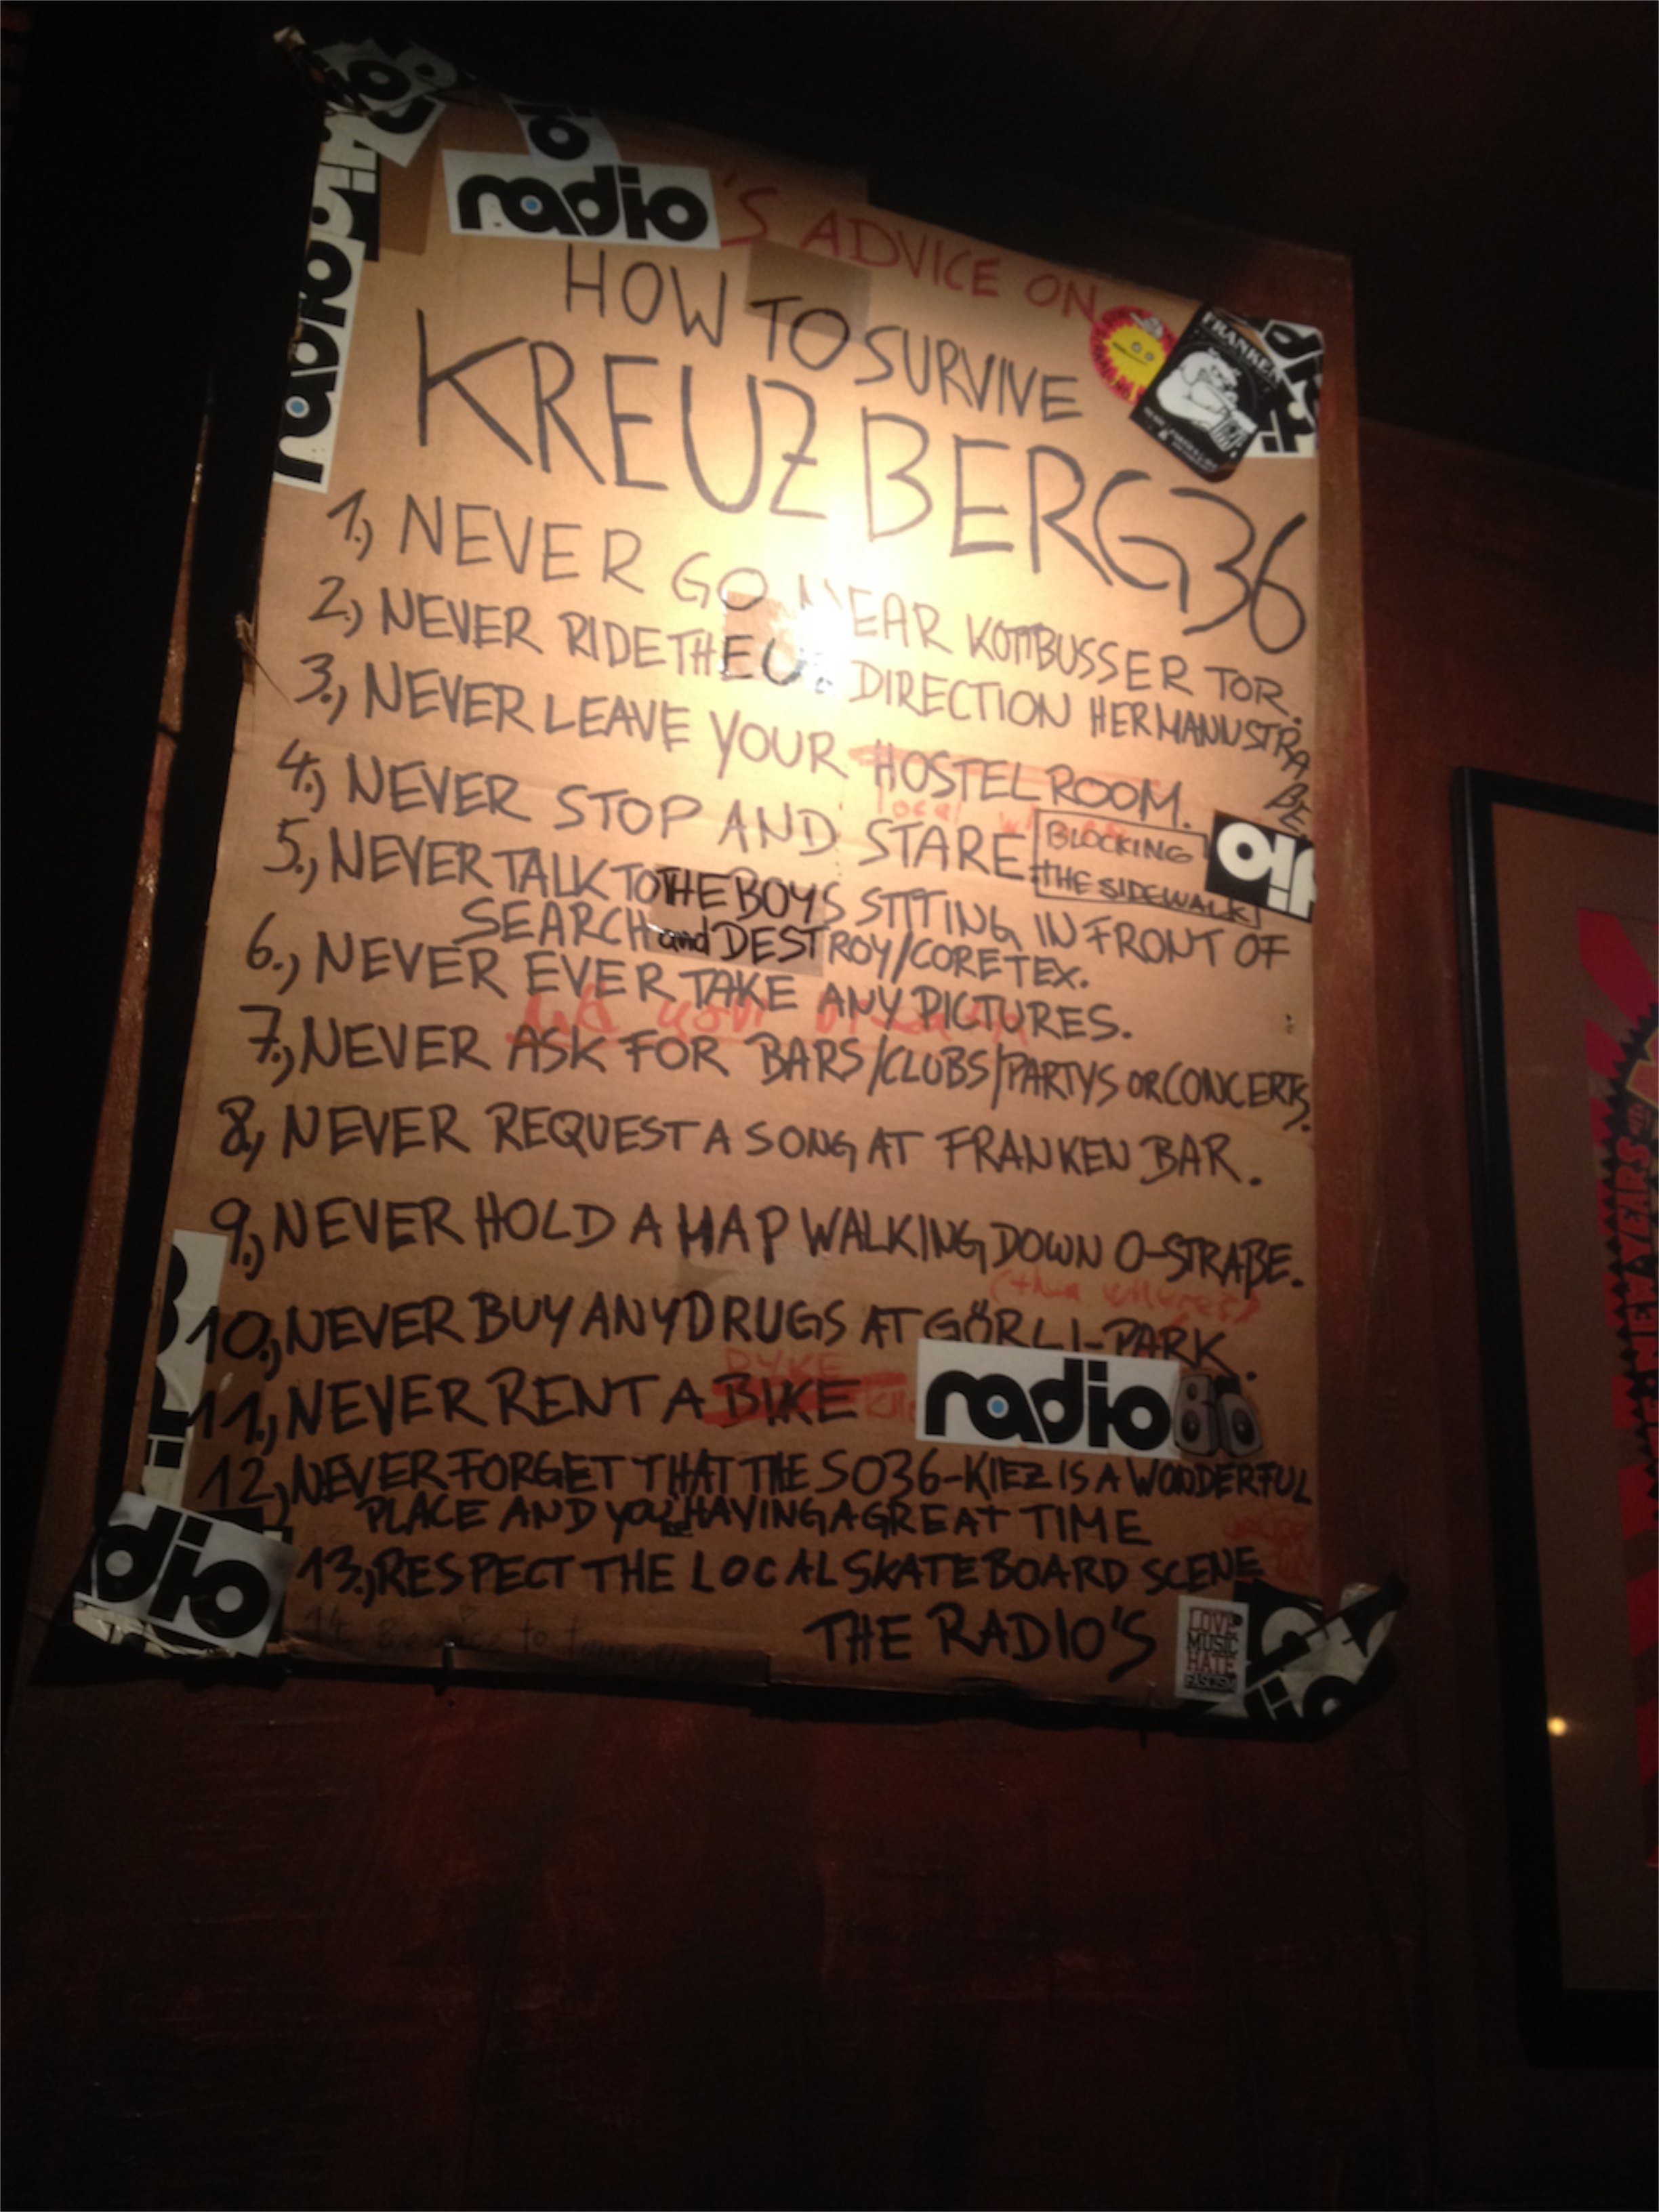 radio
radio 'S ADVICE ON
HOW TO SURVIVE
FRANKEN
KREUZBERG 36
1.) NEVER GO NEAR KOTTBUSSER TOR.
2.) NEVER RIDE THE DIRECTION HERMANNSTRAßE
3.) NEVER LEAVE YOUR HOSTEL ROOM.
local
4.) NEVER STOP AND STARE BLOCKING
THE SIDEWALK
5.) NEVER TALK TO THE BOYS SITTING IN FRONT OF
SEARCH and DESTROY/CORETEX.
6.) NEVER EVER TAKE ANY PICTURES.
7.) NEVER ASK FOR BARS/CLUBS/PARTYS OR CONCERTS.
8.) NEVER REQUEST A SONG AT FRANKEN BAR.
9.) NEVER HOLD A MAP WALKING DOWN O-STRAßE.
10.) NEVER BUY ANY DRUGS AT GÖRLI-PARK.
DYKE
11.) NEVER RENT A BIKE
radio
12.) NEVER FORGET THAT THE SO36-KIEZ IS A WONDERFUL
PLACE AND YOU'RE HAVING A GREAT TIME
dio
13.) RESPECT THE LOCAL SKATEBOARD SCENE
14. to
THE RADIO'S
LOVE
MUSIC
HATE
FASCISM
NEW WAYERS